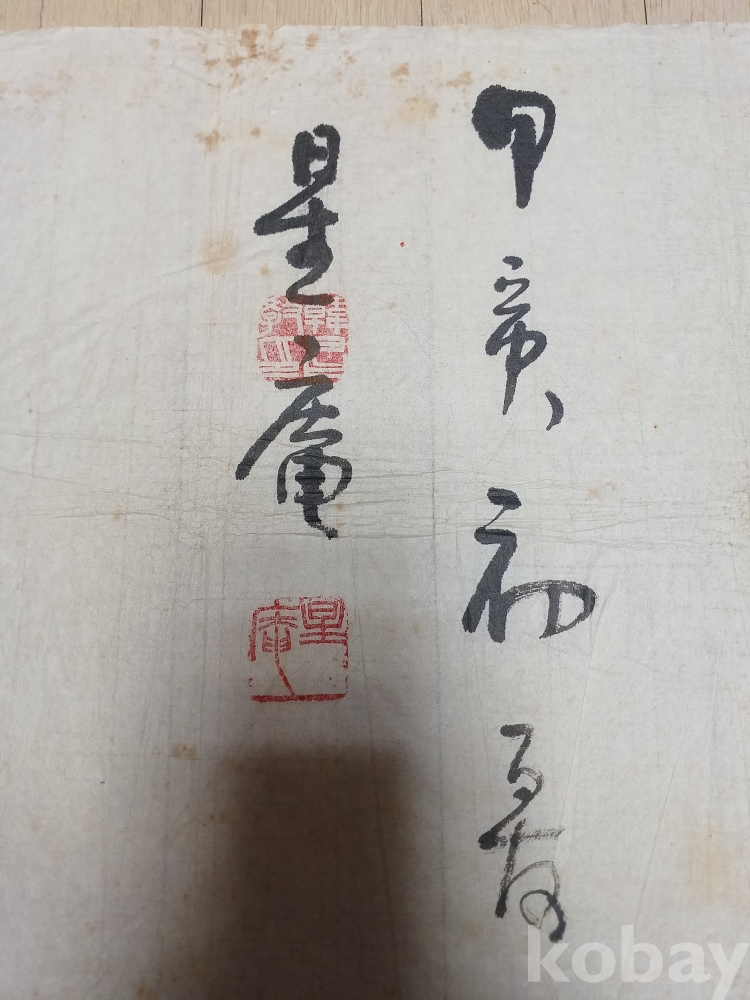 甲寅初夏
星庵
星庵
kobay